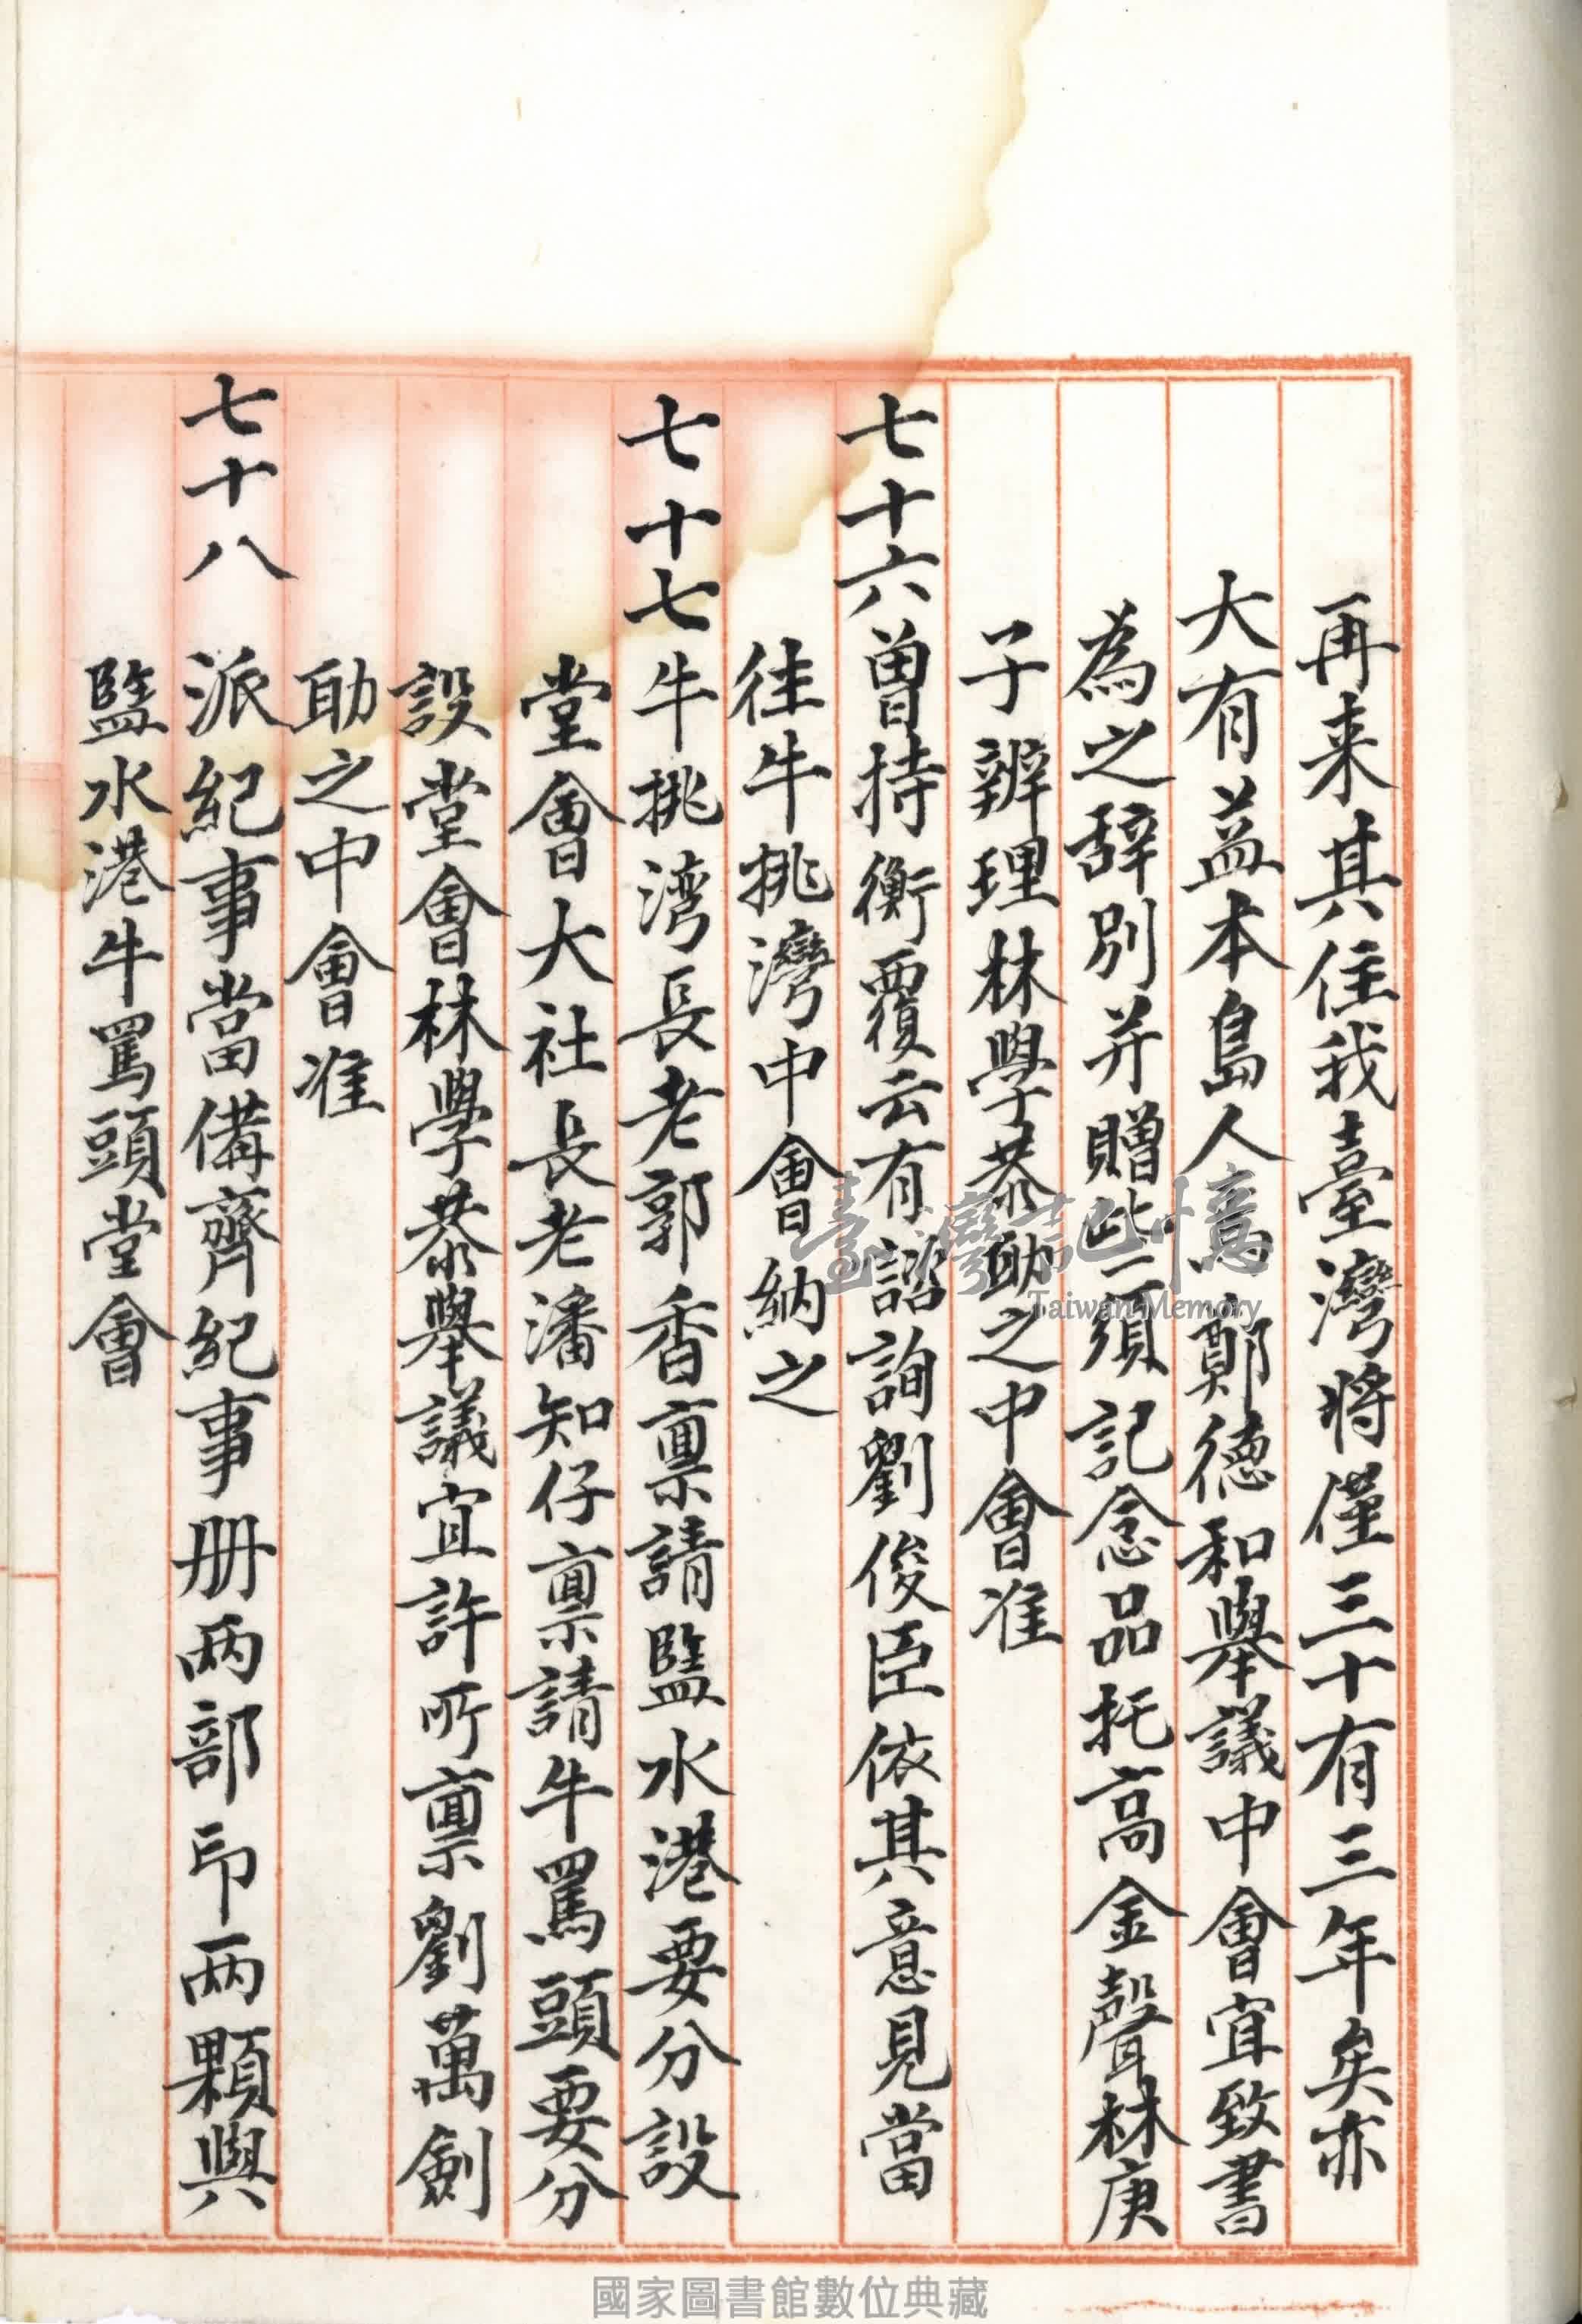 再来其住我臺灣將僅三十有三年矣亦
大有益本島人焉鄭德和舉議中會宜致書
為之辞別并贈些須記念品托高金聲林庚
子辨理林學恭助之中會准
七十六曾持衡覆云有諮詢劉俊臣依其意見當
往牛挑灣中會納之
七十七牛挑湾長老郭香稟請鹽水港要分設
堂會大社長老潘知仔稟請牛罵頭要分
設堂會林學恭舉議宜許所稟劉萬劍
助之中會准
七十八 派紀事當備齊紀事册兩部印兩顆與
鹽水港牛罵頭堂會
臺灣記憶
Taiwan Memory
國家圖書館數位典藏